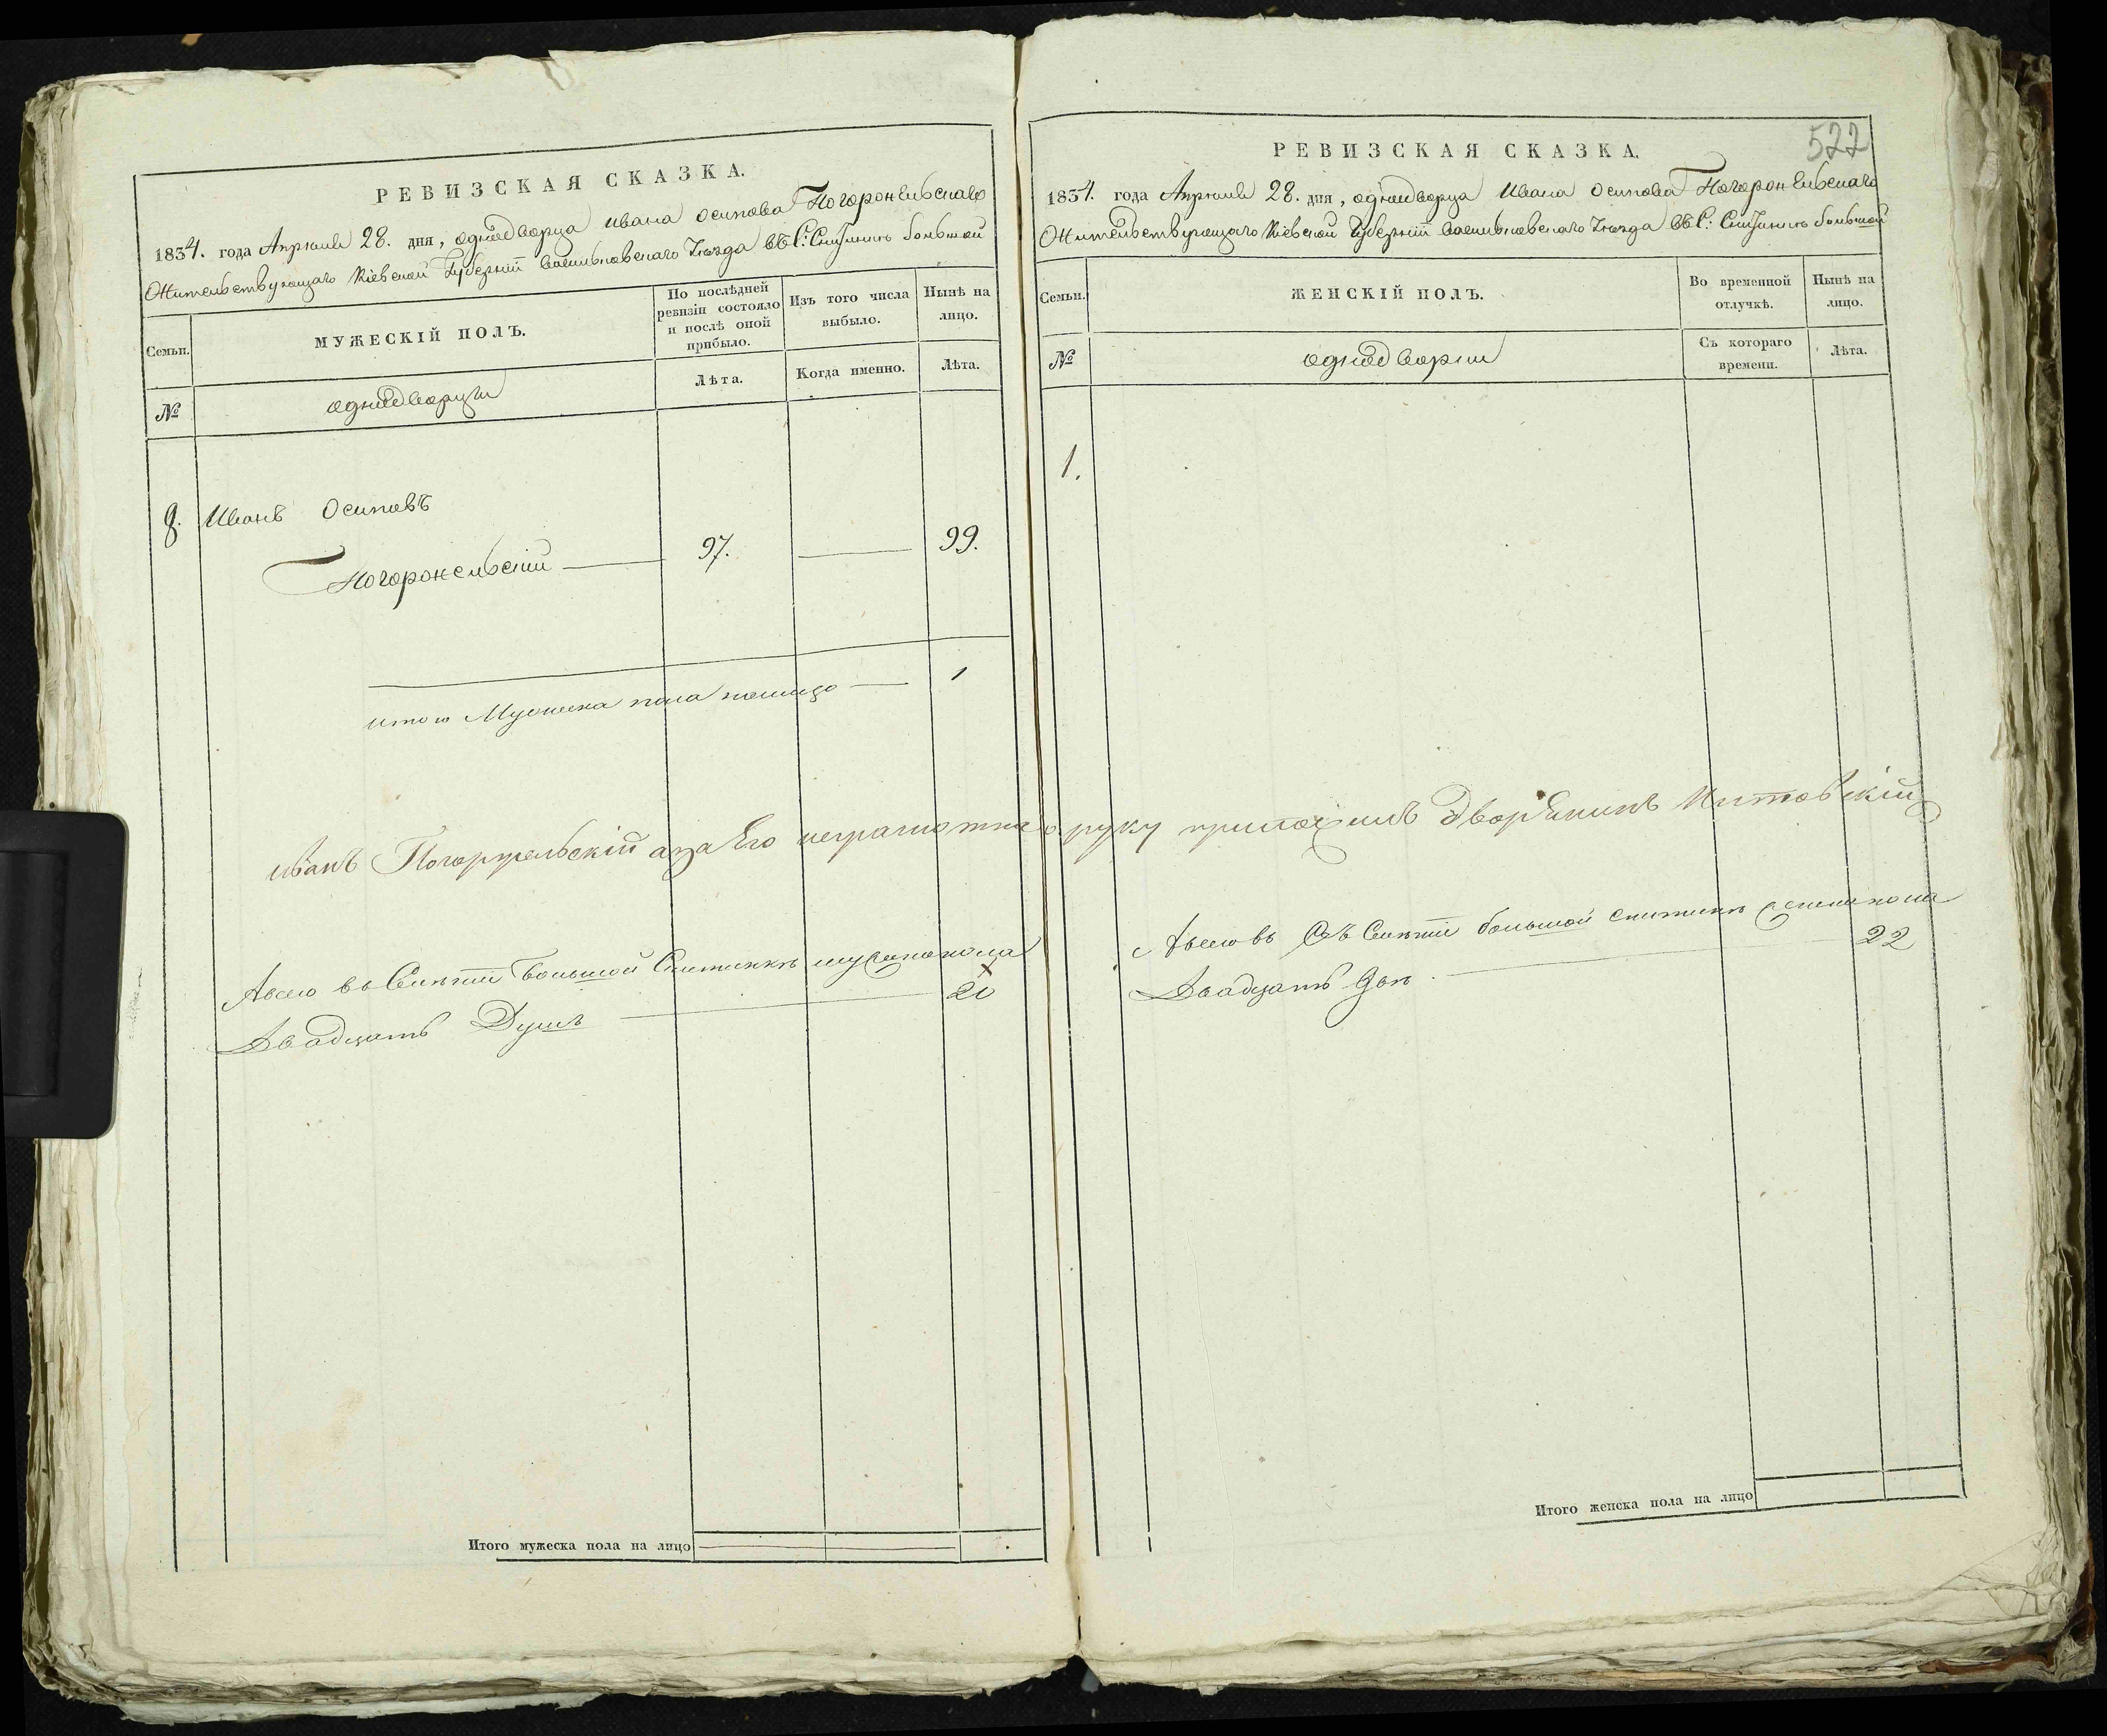 РЕВИЗСКАЯ СКАЗКА.
1834. года Апреля 28. дня, однодворца Ивана Осипова Погоржельскаго
Жительствующаго Кіевской Губерніи Васильковскаго Уезда въ С: Снитинке большой
Семьи.
МУЖЕСКІЙ ПОЛЪ.
По послѣдней ревизіи состояло и послѣ оной прибыло.
Изъ того числа выбыло.
Нынѣ на лицо.
№
однодворцы
Лѣта.
Когда именно.
Лѣта.
8. Иванъ Осиповъ
Погоржельскій 97. 99.
итого Мужеска пола налицо 1
иванъ Погоржельскій а за Его неграмотнаго руку приложилъ Дворенинъ
Авсего въ Селеніи Большой Снитинке мужеска пола
Двадцать Душъ 20
Итого мужеска пола на лицо
522
РЕВИЗСКАЯ СКАЗКА.
1834. года Апреля 28. дня, однодворца Ивана Осипова Погоржельскаго
Жительствующаго Кіевской Губерніи Васильковскаго Уезда въ С: Снитинке большой
Семьи.
ЖЕНСКІЙ ПОЛЪ.
Во временной отлучкѣ.
Нынѣ на лицо.
№
однодворки
Съ котораго времени.
Лѣта.
1.
Авсего въ Селеніи большой Снитинке женска пола
Двадцать две 22
Итого женска пола на лицо